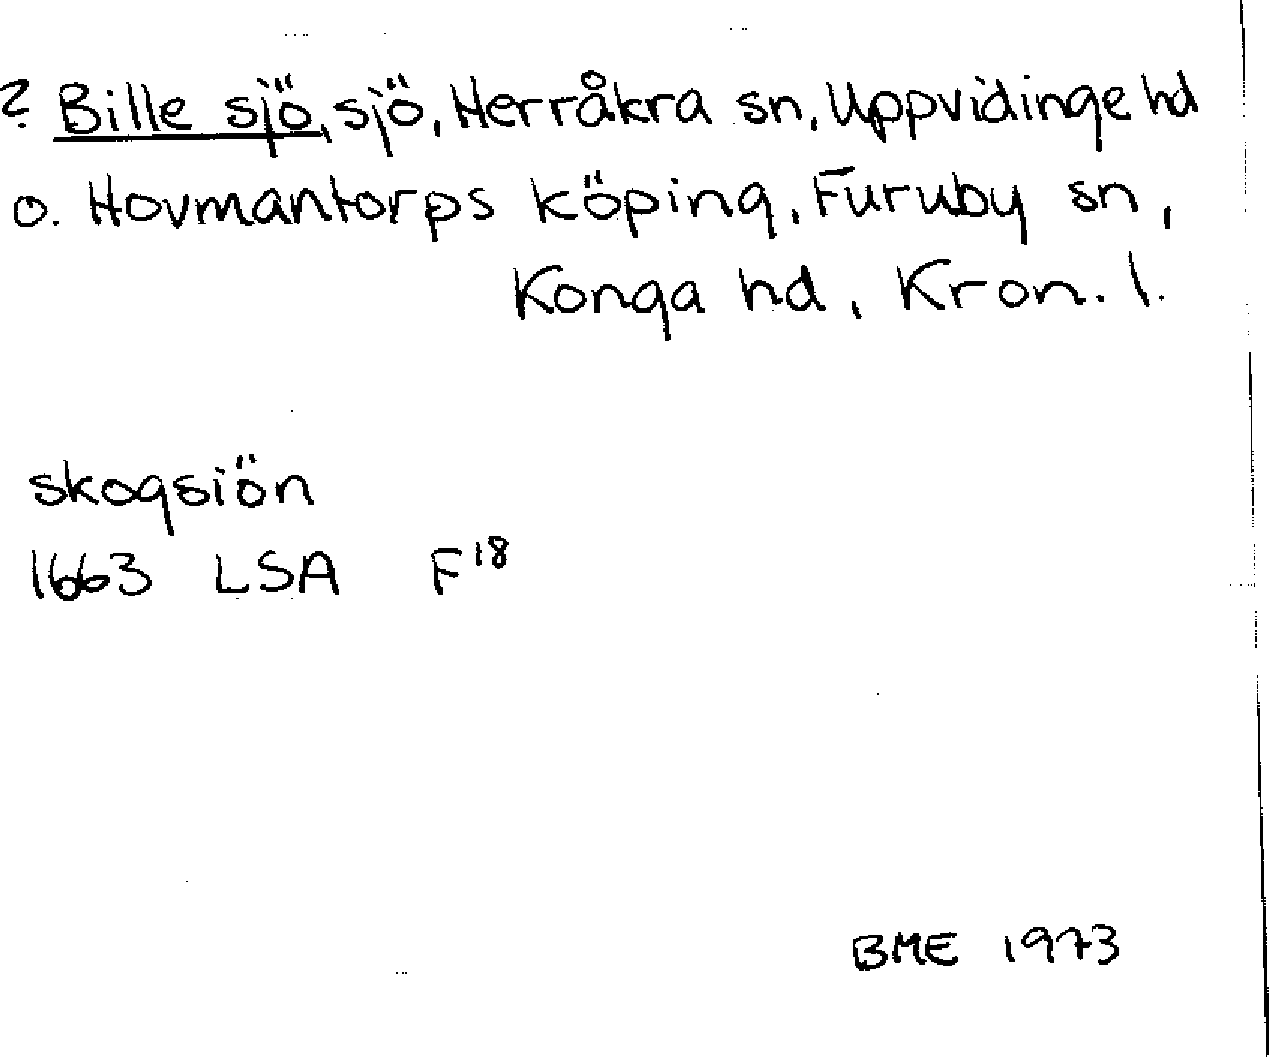 ? Bille sjö, sjö, Herråkra sn, Uppvidinge hd
o. Hovmantorps köping, Furuby sn,
Konga hd, Kron. l.
skogsiön
1663 LSA F18
BME 1973